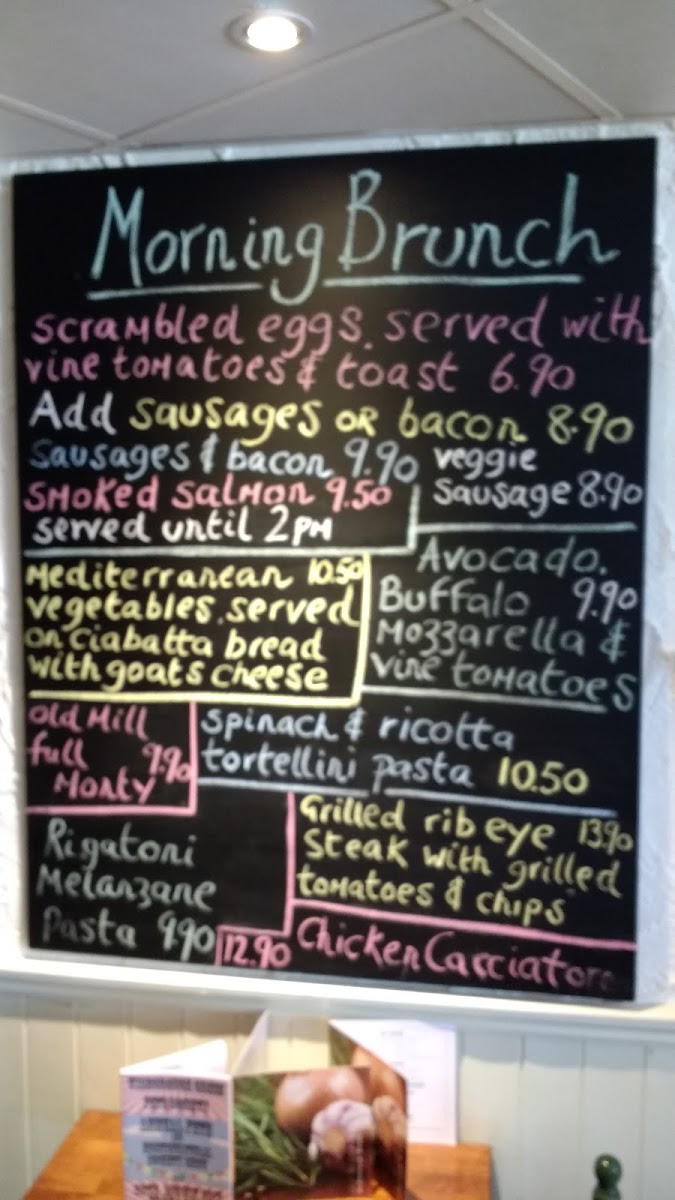 Morning Brunch
scrambled eggs. served with
vine tomatoes & toast 6.90
Add sausages or bacon 8.90
sausages & bacon 9.90
veggie
sausage 8.90
smoked salmon 9.50
served until 2pm
Mediterranean 10.50
vegetables. served
on ciabatta bread
with goats cheese
Avocado.
Buffalo 9.90
Mozzarella &
vine tomatoes
Old Mill
full 9.90
Monty
spinach & ricotta
tortellini pasta 10.50
Rigatoni
Melanzane
Pasta 9.90
Grilled rib eye 13.90
steak with grilled
tomatoes & chips
12.90 Chicken Cacciatore